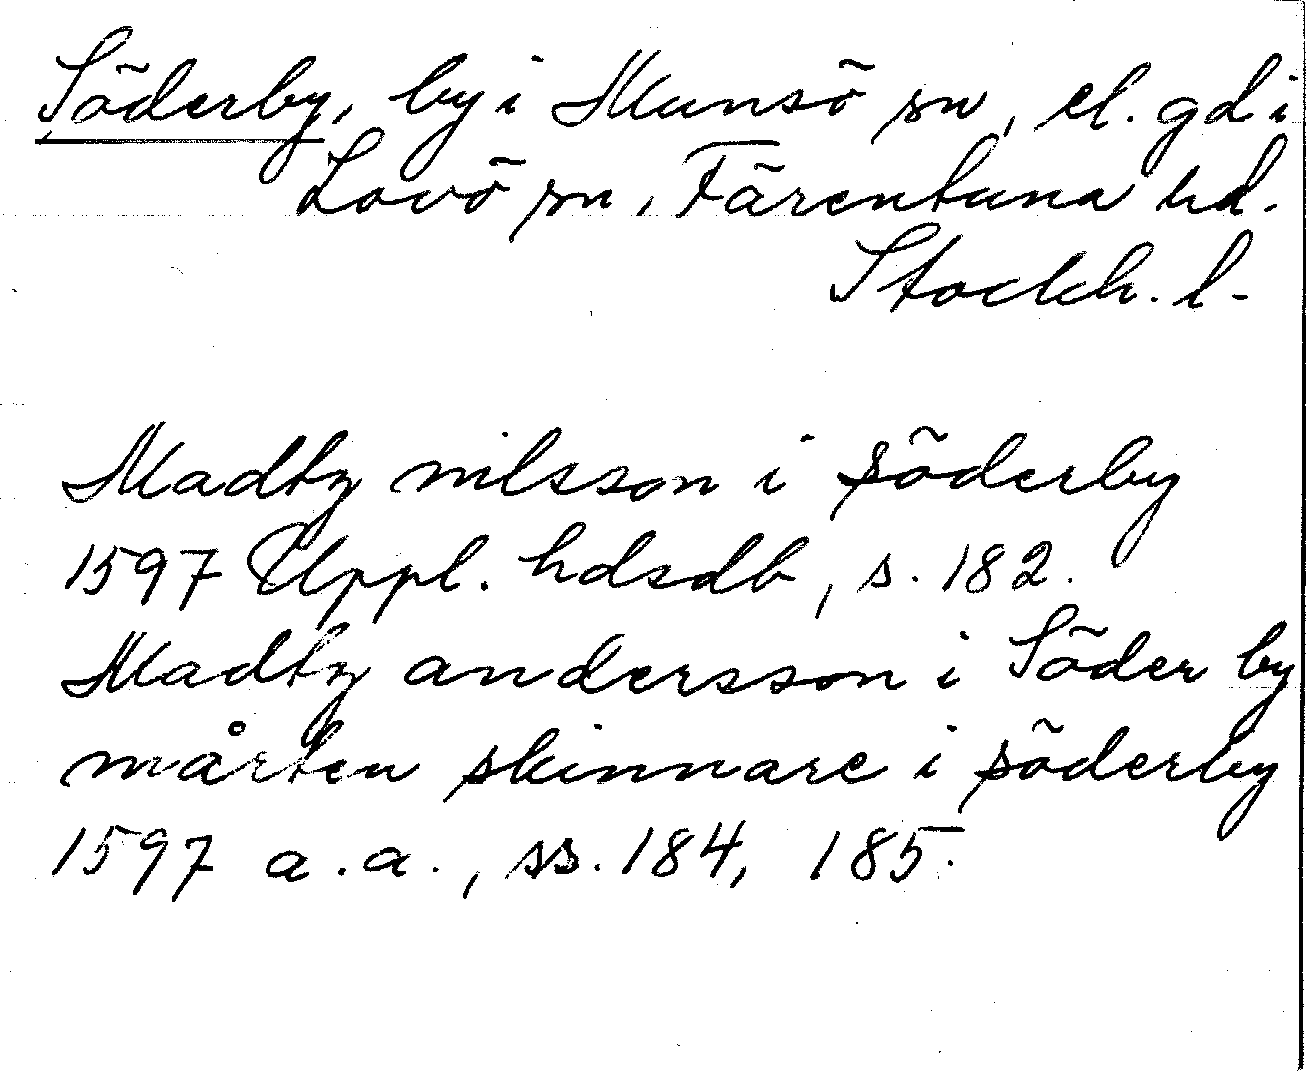 Söderby, by i Munsö sn, el. gd i
Lovö sn, Färentuna hd.
Stockh. l.
Madtz nilsson i söderby
1597 Uppl. hdsdb, s. 182.
Madtz andersson i Söder by
mårten skinnare i söderby
1597 a.a., ss. 184, 185.